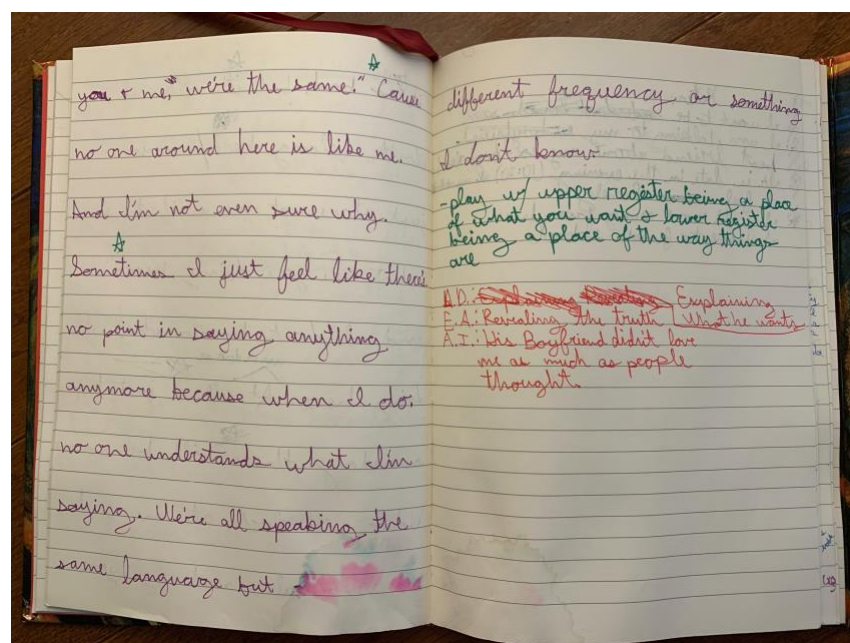 you & me, we're the same." Cause
no one around here is like me.
And I'm not even sure why.
Sometimes I just feel like there's
no point in saying anything
anymore because when I do,
no one understands what I'm
saying. We're all speaking the
same language but -
different frequency or something
I don't know.
-play w/ upper register being a place
of what you want & lower register
being a place of the way things
are
A.D.: Explaining
E.A.: Revealing the truth What he wants
A.I.: His Boyfriend didn't love
me as much as people
thought.